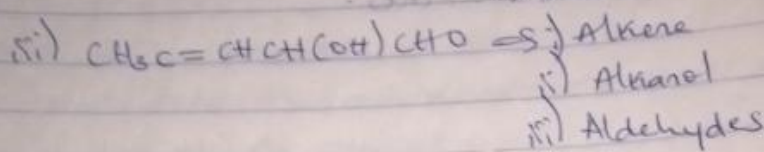 iii) CH3C=CHCH(OH)CHO => i) Alkene
ii) Alkanol
iii) Aldehydes